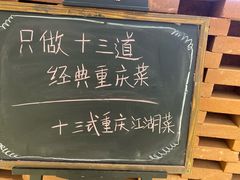 只做十三道
经典重庆菜
十三式重庆江湖菜